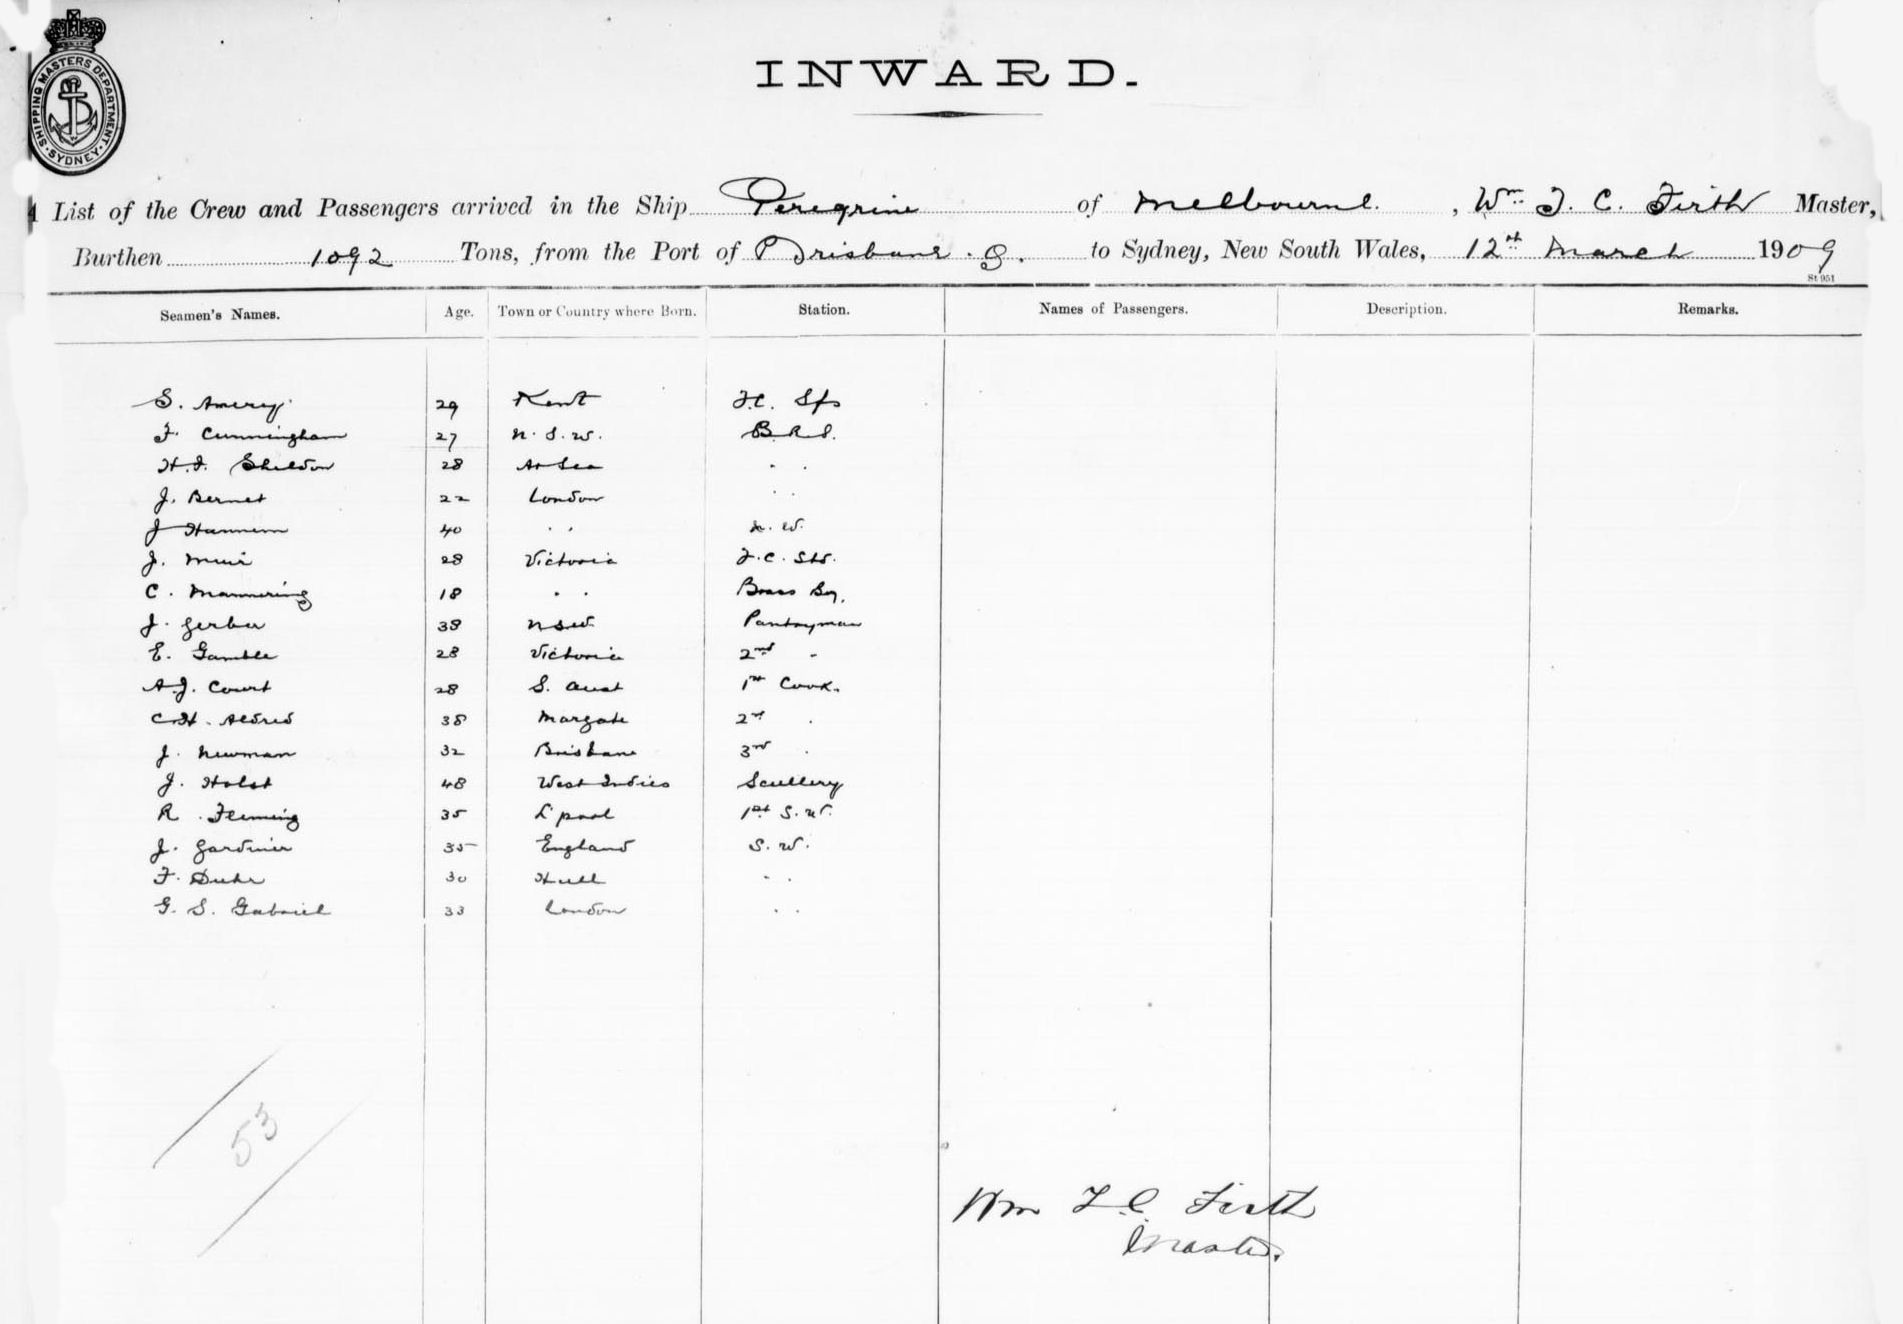 SHIPPING MASTERS DEPARTMENT. SYDNEY
INWARD.
List of the Crew and Passengers arrived in the Ship Peregrine of Melbourne. , Wm T. C. Firth Master,
Burthen 1092 Tons, from the Port of Brisbane . Q. to Sydney, New South Wales, 12th March 1909
St 951
Seamen's Names. Age. Town or Country where Born. Station. Names of Passengers. Description. Remarks.
S. Amery 29 Kent F.C.
F. Cunningham 27 N.S.W. B.R.S.
H.J. Sheldon 28 At Sea " "
J. Bernet 22 London " "
J Hannem 40 " "
J. Muir 28 Victoria F.C. Sts.
C. Mannering 18 " " Brass Boy.
J. Gerber 38 NSW. Pantryman
E. Gamble 28 Victoria 2nd "
A.J. Court 28 S. Aust 1st Cook.
C.H. Aldred 38 Margate 2nd "
J. Newman 32 Brisbane 3rd "
J. Holst 48 West Indies Scullery
R. Fleming 35 L'pool 1st S.W.
J. Gardiner 35 England S.W.
F. 30 Hull " "
G. S. Gabriel 33 London " "
53
Wm T.C. Firth
Master.